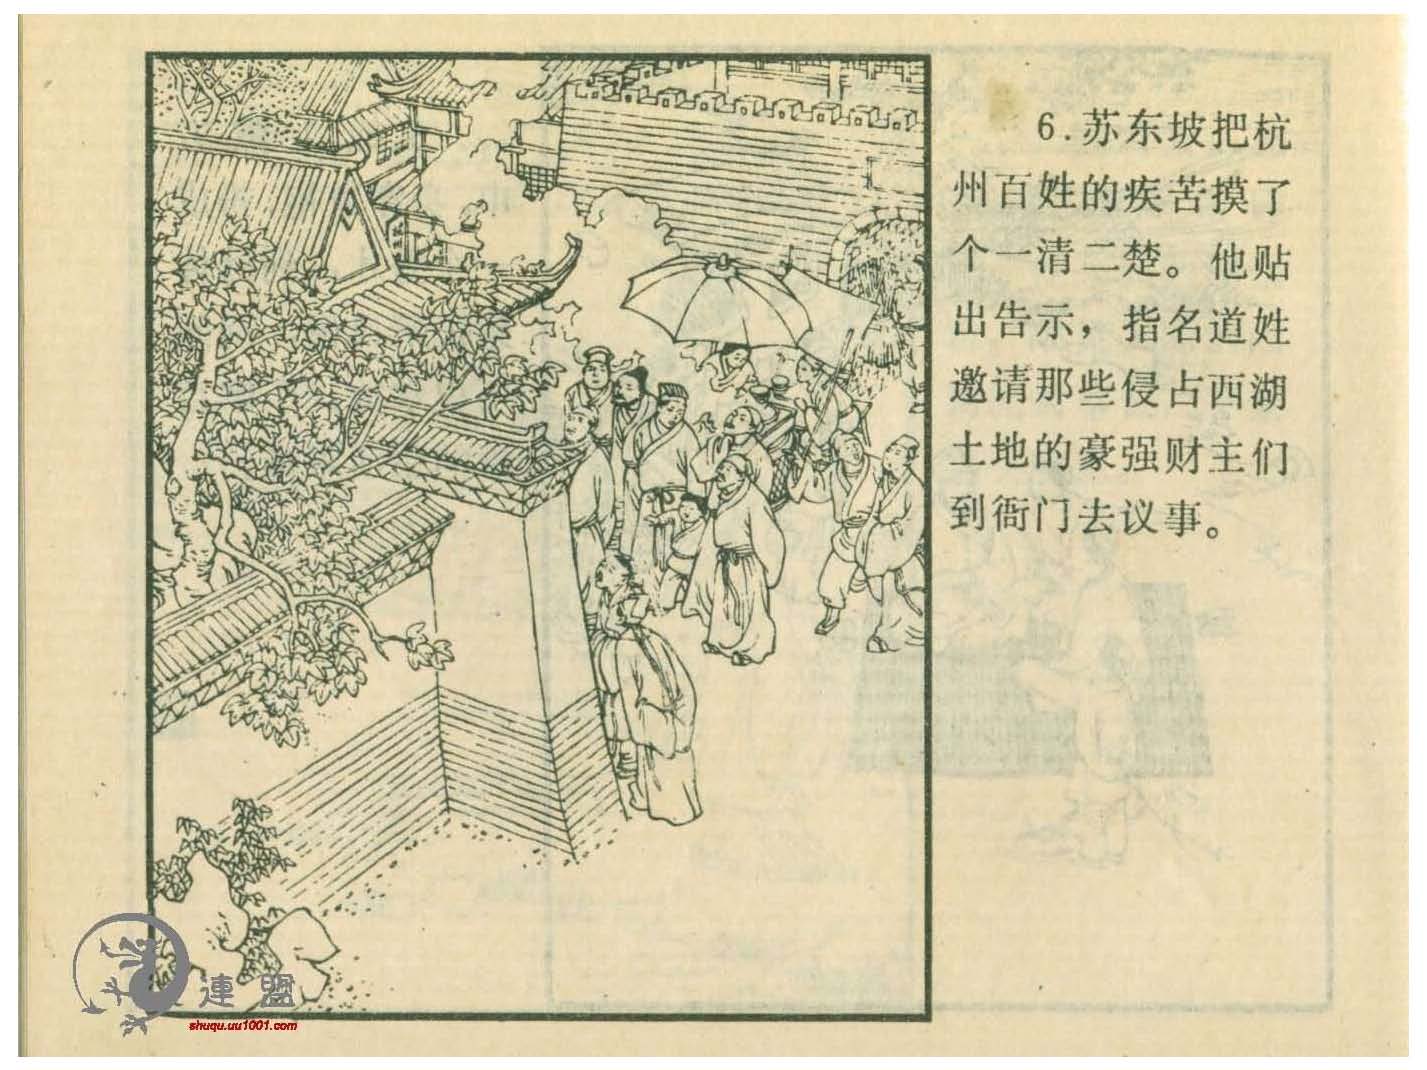 6.苏东坡把杭
州百姓的疾苦摸了
个一清二楚。他贴
出告示，指名道姓
邀请那些侵占西湖
土地的豪强财主们
到衙门去议事。
連盟
shuqu.uu1001.com